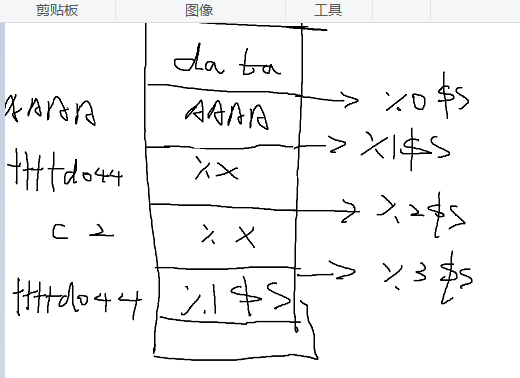 剪贴板 图像 工具
data
AAAA AAAA %0$s
%1$s
ffffd044 %x
%2$s
c2 %x
%3$s
ffffd044 %1$s